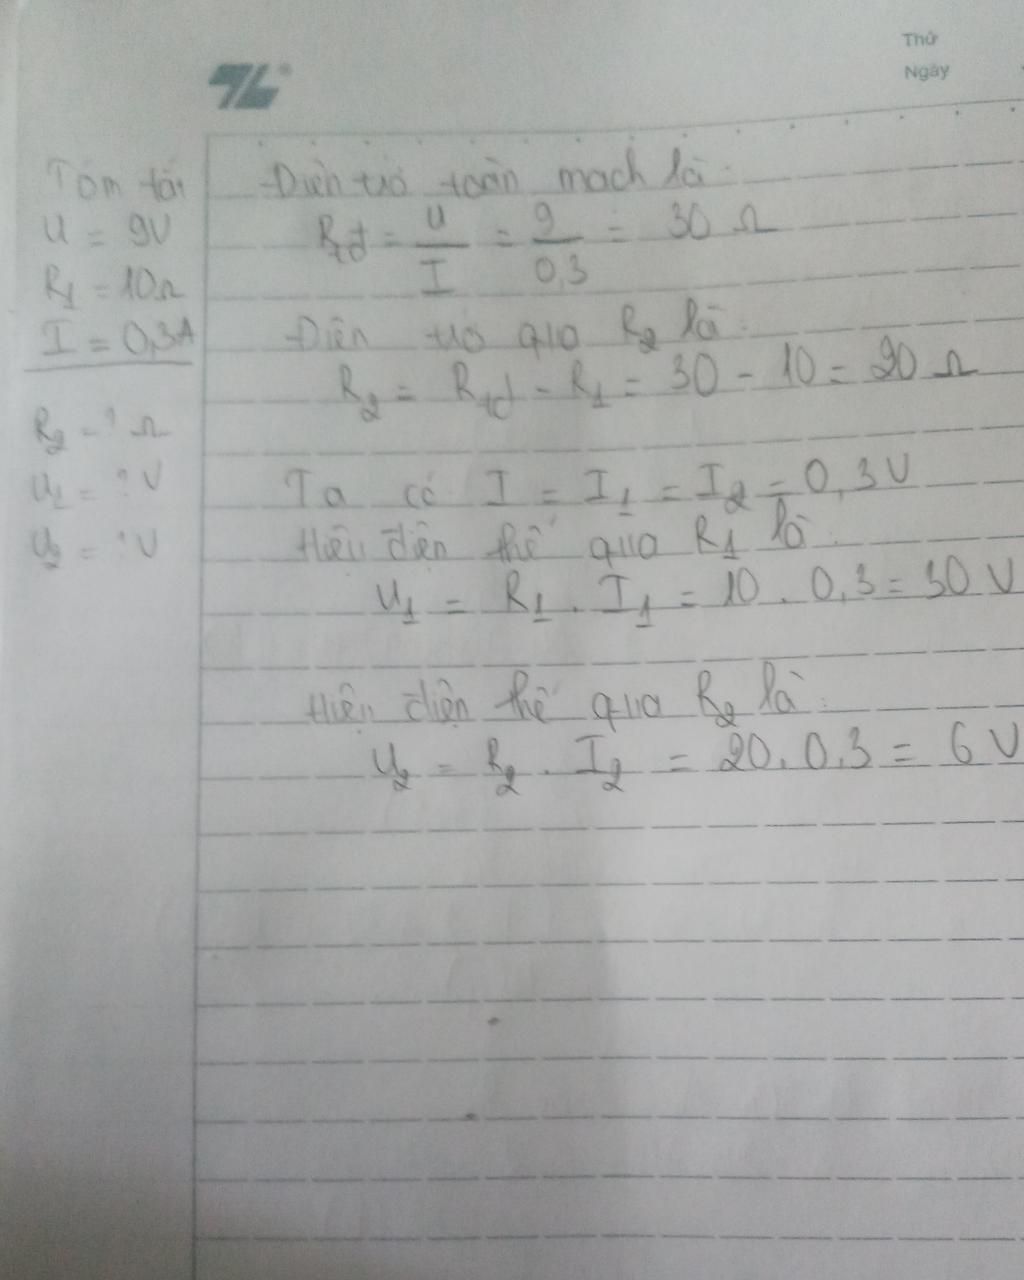 Thứ
Ngày
Tóm tắt
U = 9V
R1 = 10Ω
I = 0,3A
R2 = ? Ω
U1 = ? V
U2 = ? V
Điện trở toàn mạch là:
Rtđ = U/I = 9/0,3 = 30 Ω
Điện trở qua R2 là:
R2 = Rtđ - R1 = 30 - 10 = 20 Ω
Ta có I = I1 = I2 = 0,3V
Hiệu điện thế qua R1 là:
U1 = R1 . I1 = 10 . 0,3 = 30 V
Hiệu điện thế qua R2 là:
U2 = R2 . I2 = 20. 0,3 = 6 V